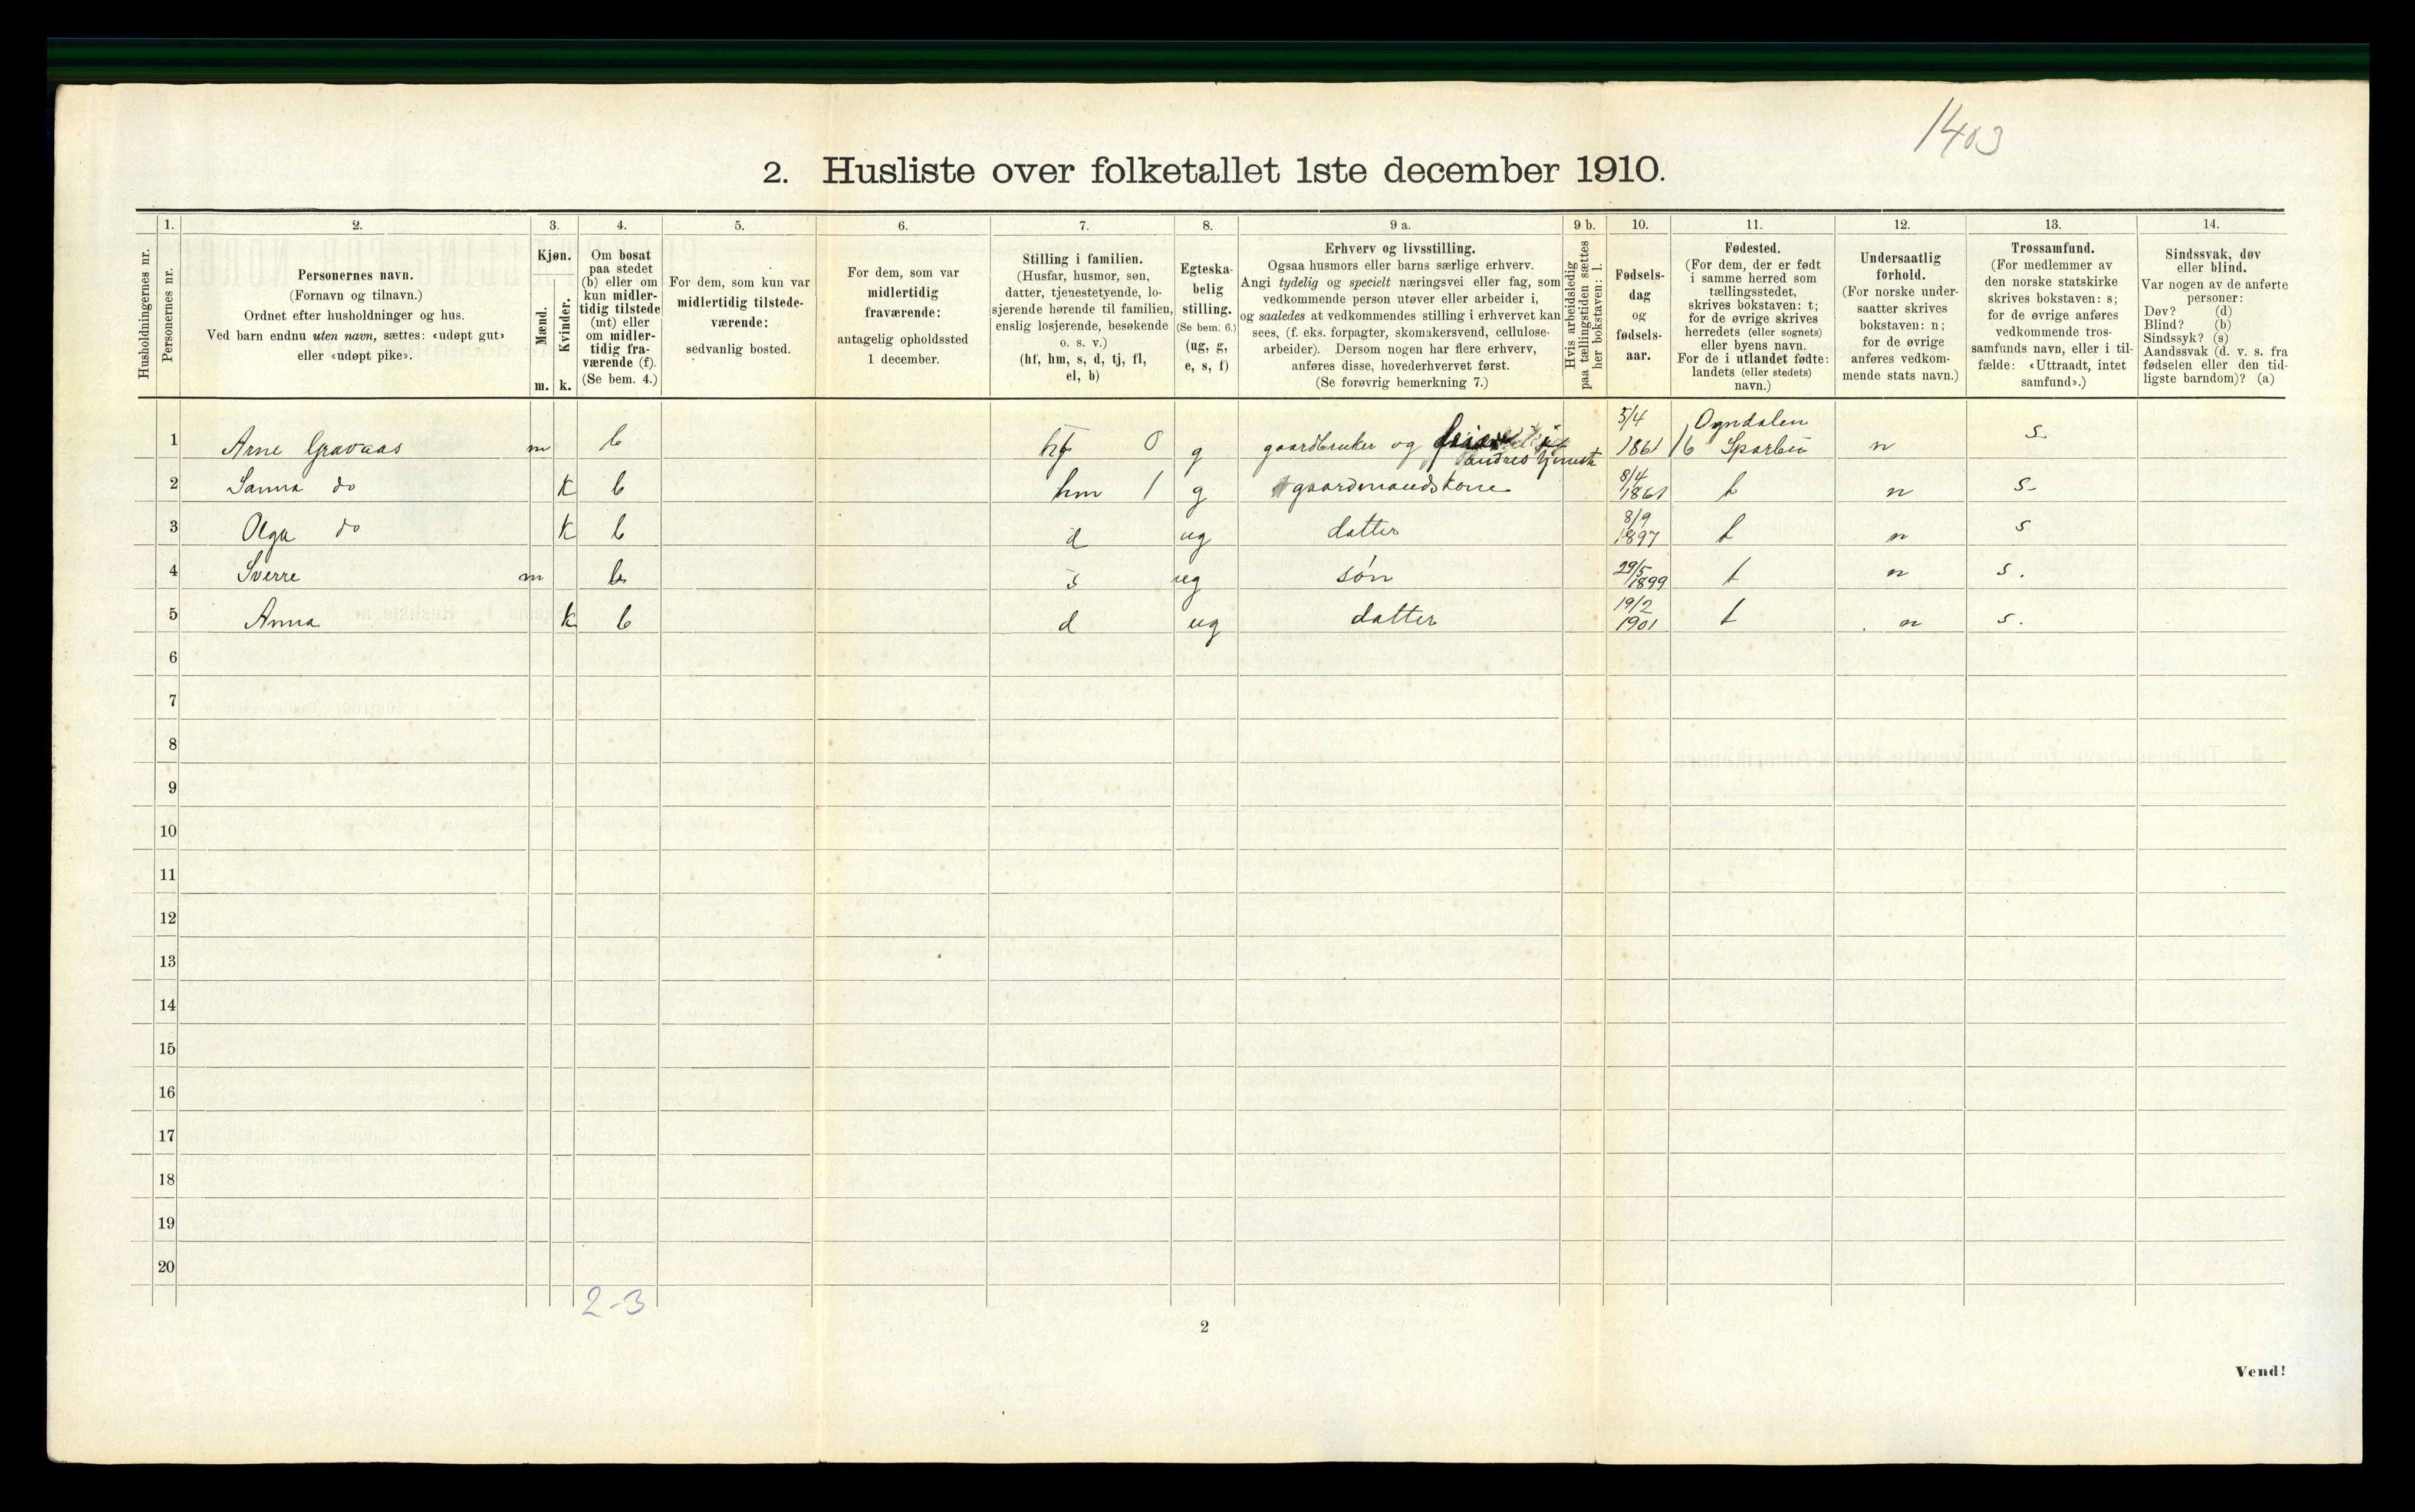 1403
2. Husliste over folketallet 1ste december 1910.
Husholdningernes nr.
1.
Personernes nr.
2.
Personernes navn.
(Fornavn og tilnavn.)
Ordnet efter husholdninger og hus.
Ved barn endnu uten navn, sættes: «udøpt gut»
eller «udøpt pike».
3.
Kjøn.
Mænd.
Kvinder.
m. k.
4.
Om bosat
paa stedet
(b) eller om
kun midler-
tidig tilstede
(mt) eller
om midler-
tidig fra-
værende (f).
(Se bem. 4.)
5.
For dem, som kun var
midlertidig tilstede-
værende:
sedvanlig bosted.
6.
For dem, som var
midlertidig
fraværende:
antagelig opholdssted
1 december.
7.
Stilling i familien.
(Husfar, husmor, søn,
datter, tjenestetyende, lo-
sjerende hørende til familien,
enslig losjerende, besøkende
o. s. v.)
(hf, hm, s, d, tj, fl,
el, b)
8.
Egteska-
belig
stilling.
(Se bem. 6.)
(ug, g,
e, s, f)
9 a.
Erhverv og livsstilling.
Ogsaa husmors eller barns særlige erhverv.
Angi tydelig og specielt næringsvei eller fag, som
vedkommende person utøver eller arbeider i,
og saaledes at vedkommendes stilling i erhvervet kan
sees, (f. eks. forpagter, skomakersvend, cellulose-
arbeider). Dersom nogen har flere erhverv,
anføres disse, hovederhvervet først.
(Se forøvrig bemerkning 7.)
9 b.
Hvis arbeidsledig
paa tællingstiden sættes
her bokstaven: l.
10.
Fødsels-
dag
og
fødsels-
aar.
11.
Fødested.
(For dem, der er født
i samme herred som
tællingsstedet,
skrives bokstaven: t;
for de øvrige skrives
herredets (eller sognets)
eller byens navn.
For de i utlandet fødte:
landets (eller stedets)
navn.)
12.
Undersaatlig
forhold.
(For norske under-
saatter skrives
bokstaven: n;
for de øvrige
anføres vedkom-
mende stats navn.)
13.
Trossamfund.
(For medlemmer av
den norske statskirke
skrives bokstaven: s;
for de øvrige anføres
vedkommende tros-
samfunds navn, eller i til-
fælde: «Uttraadt, intet
samfund».)
14.
Sindssvak, døv
eller blind.
Var nogen av de anførte
personer:
Døv? (d)
Blind? (b)
Sindssyk? (s)
Aandssvak (d. v. s. fra
fødselen eller den tid-
ligste barndom)? (a)
1 Arne Gravaas m b hf 0 g gaardbruker og andres tjeneste 5/4 1861 16 Ogndalen Sparbu n s
2 Sanna do k b hm 1 g gaardmandskone 8/4 1861 t n s
3 Olga do k b d ug datter 8/9 1897 t n s
4 Sverre m b s ug søn 29/5 1899 t n s.
5 Anna k b d ug datter 19/2 1901 t n s.
6
7
8
9
10
11
12
13
14
15
16
17
18
19
20
2-3
2
Vend!